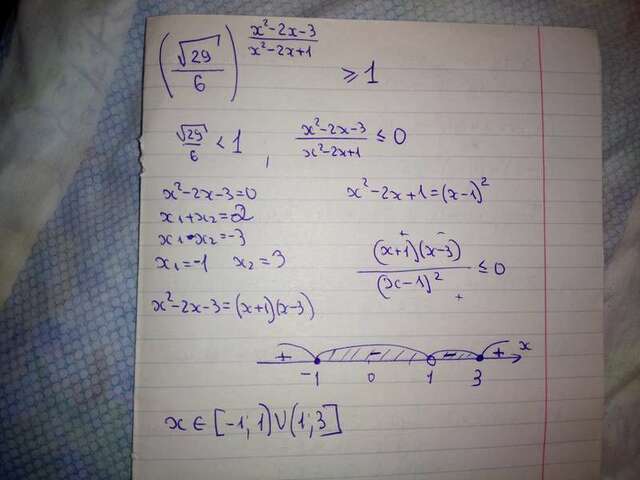 (√29/6)^((x²-2x-3)/(x²-2x+1)) ⩾ 1
√29/6 < 1 (x²-2x-3)/(x²-2x+1) ≤ 0
x²-2x-3=0 x²-2x+1=(x-1)²
x₁+x₂=2
x₁·x₂=-3
x₁=-1 x₂=3 (x+1)(x-3)/(x-1)² ≤ 0
x²-2x-3=(x+1)(x-3)
+ -1 - 0 1 - 3 + x
x ∈ [-1; 1) ∪ (1; 3]